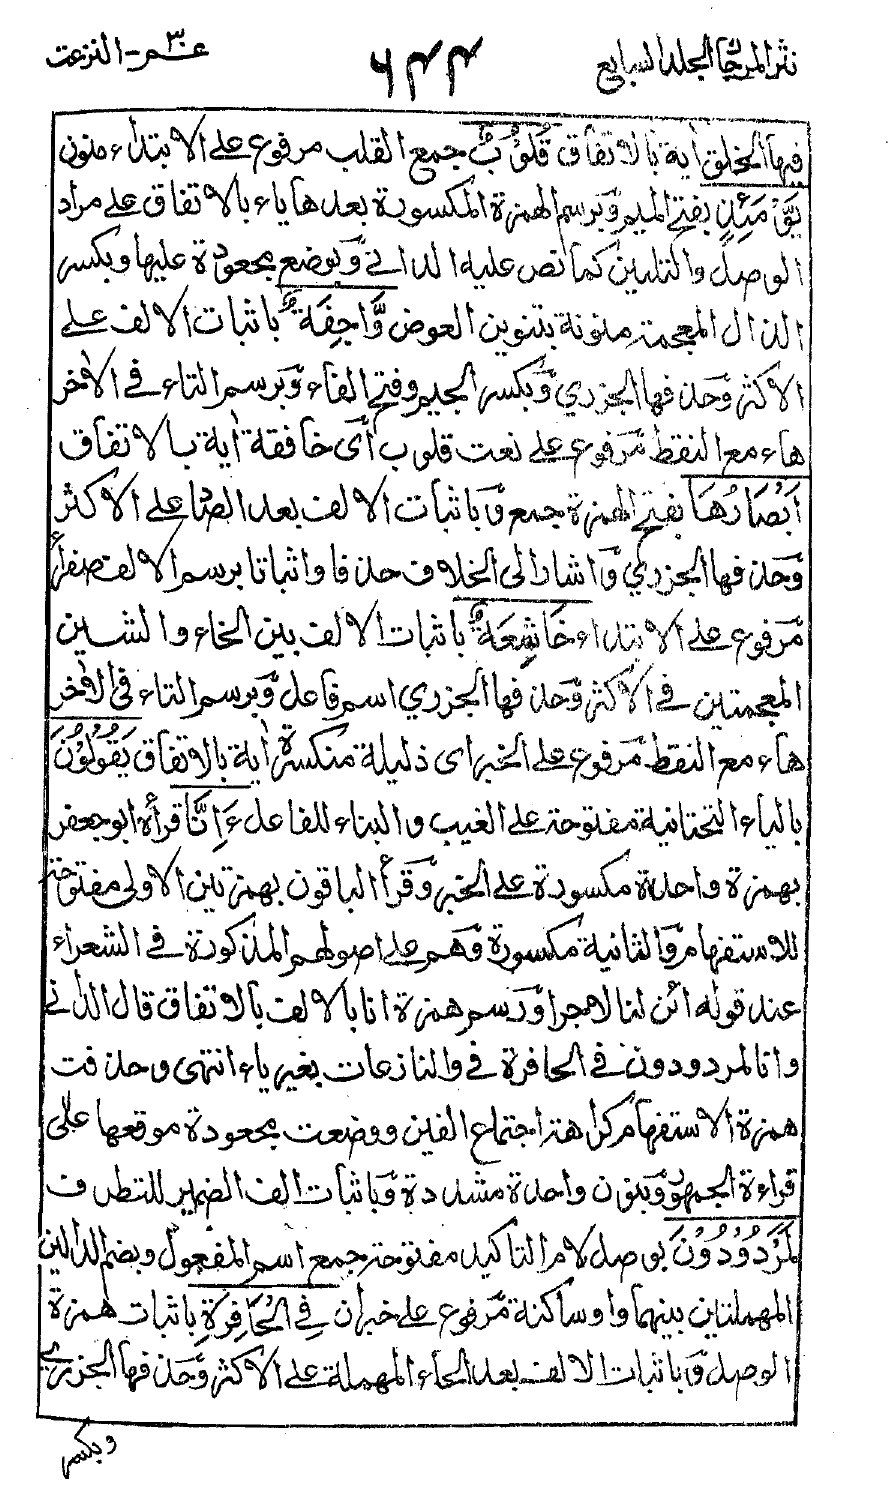 نثر المرجان المجلد السابع
٦٤٤
عم ٣٠ - النزعت
فيها الخلق آية بالاتفاق قُلُوْبٌ جمع القلب مرفوع على الابتداء منون
يَّوْمَئِذٍ بفتح الميم وبرسم الهمزة المكسورة بعدها ياء بالاتفاق على مراد
الوصل والتليين كما نص عليه الداني ويوضع مجعودة عليها وبكسر
الذال المعجمة منونة بتنوين العوض وَّاجِفَةٌ باثبات الالف على
الاكثر وحذفها الجزري وبكسر الجيم وفتح الفاء وبرسم التاء في الاٰخر
هاء مع النقط مرفوع على نعت قلوب أى خافقة اٰية بالاتفاق
اَبْصَارُهَا بفتح الهمزة جمع وباثبات الالف بعد الصاد على الاكثر
وحذفها الجزري واشار الى الخلاف حذفا واثباتا برسم الالف صفراً
مرفوع على الابتداء خَاشِعَةٌ باثبات الالف بين الخاء والشين
المعجمتين في الاكثر وحذفها الجزري اسم فاعل وبرسم التاء في الاٰخر
هاء مع النقط مرفوع على الخبر اى ذليلة منكسرة اٰية بالاتفاق يَقُوْلُوْنَ
بالياء التحتانية مفتوحة على الغيب والبناء للفاعل ءَاِنَّا قرأه ابو جعفر
بهمزة واحدة مكسورة على الخبر وقرأ الباقون بهمزتين الاولى مفتوحة
للاستفهام والثانية مكسورة وهم على اصولهم المذكورة في الشعراء
عند قوله ائن لنا لاجرا ورسم همزة انا بالالف بالاتفاق قال الداني
وانا لمردودون في الحافرة في والنازعات بغير ياء انتهى وحذفت
همزة الاستفهام كراهة اجتماع الفين ووضعت مجعودة موقعها على
قراءة الجمهور وبنون واحدة مشددة وباثبات الف الضمير للتطرف
لَمَرْدُوْدُوْنَ بوصل لام التاكيد مفتوحة جمع اسم المفعول وبضم الدالين
المهملتين بينهما واو ساكنة مرفوع على خبران فِي الْحَافِرَةِ باثبات همزة
الوصل وباثبات الالف بعد الحاء المهملة على الاكثر وحذفها الجزري
وبكسر